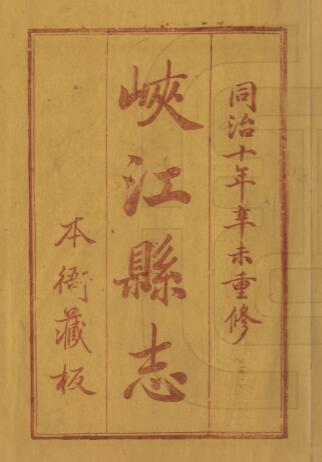 同治十年辛未重修
峽江縣志
本衙藏板